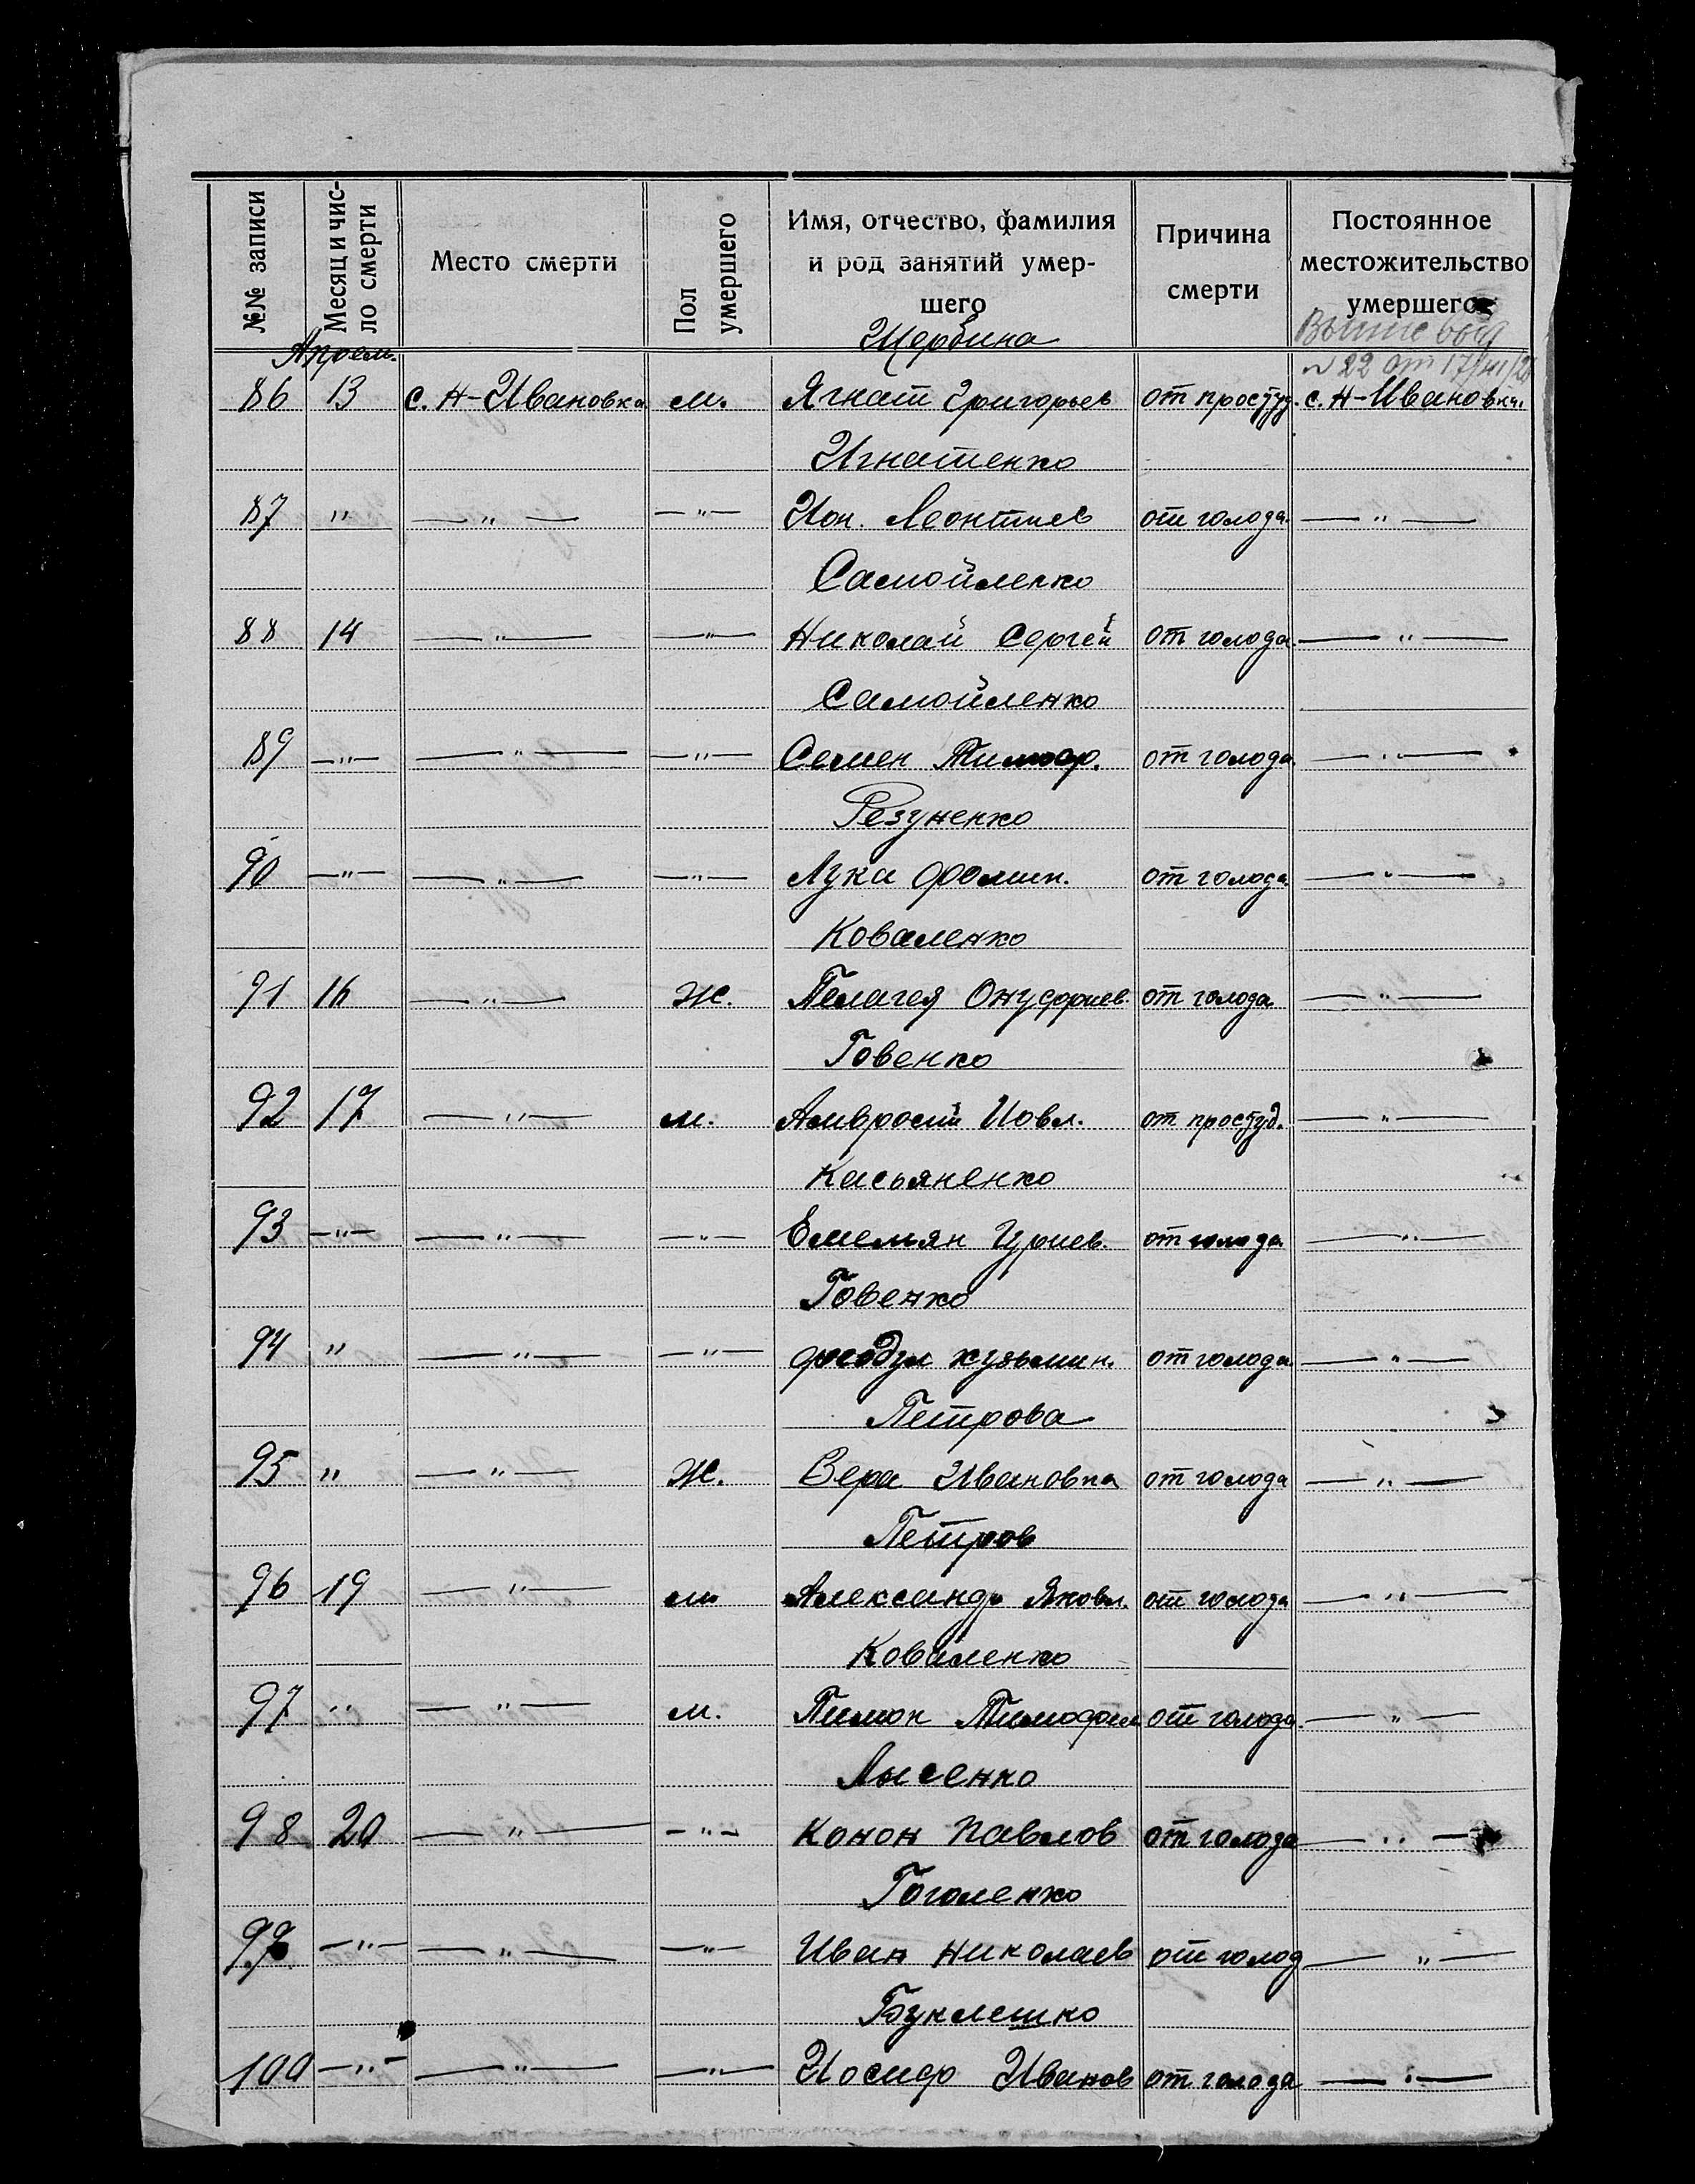 №№ записи
Месяц и чис-
ло смерти
Место смерти
Пол
умершего
Имя, отчество, фамилия
и род занятий умер-
шего
Причина
смерти
Постоянное
местожительство
умершего
Щербина
№ 22 от
86 13 с. Н-Ивановка м. Ягнат Григорьев от простуд. с. Н-Ивановка.
Игнатенко
87 " — " — — " — Ион. Леонтиев от голода. — " —
Самойленко
88 14 — " — — " — Николай Сергей от голода. — " —
Самойленко
89 — " — — " — — " — Семен Тимоф. от голода. — " —
Резуненко
90 — " — — " — — " — Лука Фомич. от голода. — " —
Коваленко
91 16 — " — ж. Пелагея Онуфриев. от голода. — " —
Говенко
92 17 — " — м. Амвросий Иовл. от простуд. — " —
Касьяненко
93 — " — — " — — " — Емельян Гуриев. от голода. — " —
Говенко
94 " — " — — " — Кузьмин. от голода. — " —
Петрова
95 " — " — ж. Вера Ивановна от голода — " —
Петров
96 19 — " — м Александр Яковл. от голода — " —
Коваленко
97 " — " — м. Пимон Тимофеи от голода. — " —
Лысенко
98 20 — " — — " — Конон Павлов от голода — " —
Гоголенко
99 — " — — " — — " — Иван Николаев от голод — " —
Буклешко
100 — " — — " — — " — Иосиф Иванов от голода — " —